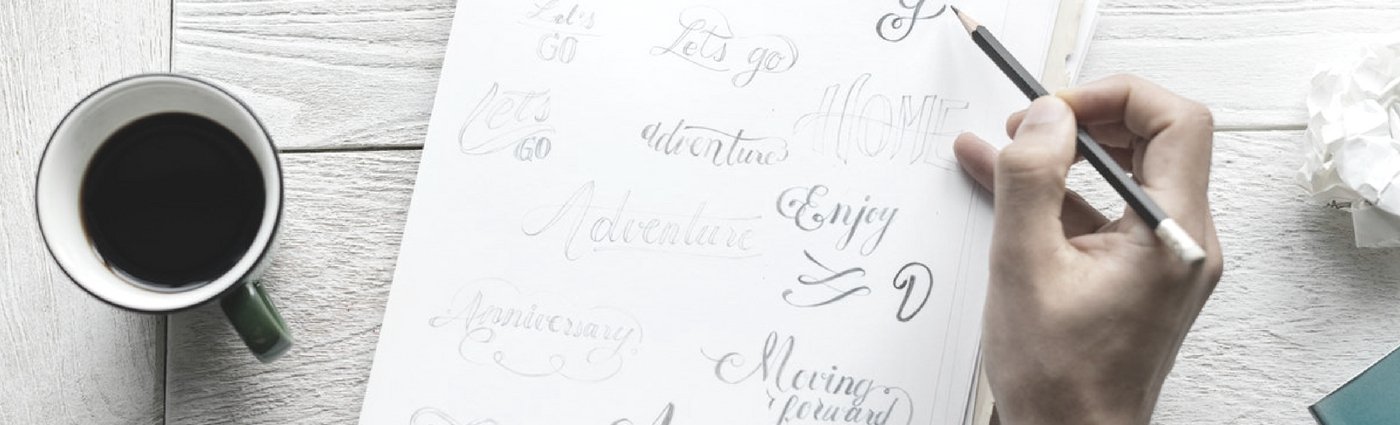 Let's
GO
Let's go
Let's
GO
adventure
HOME
Adventure
Enjoy
D
Anniversary
Moving
forward